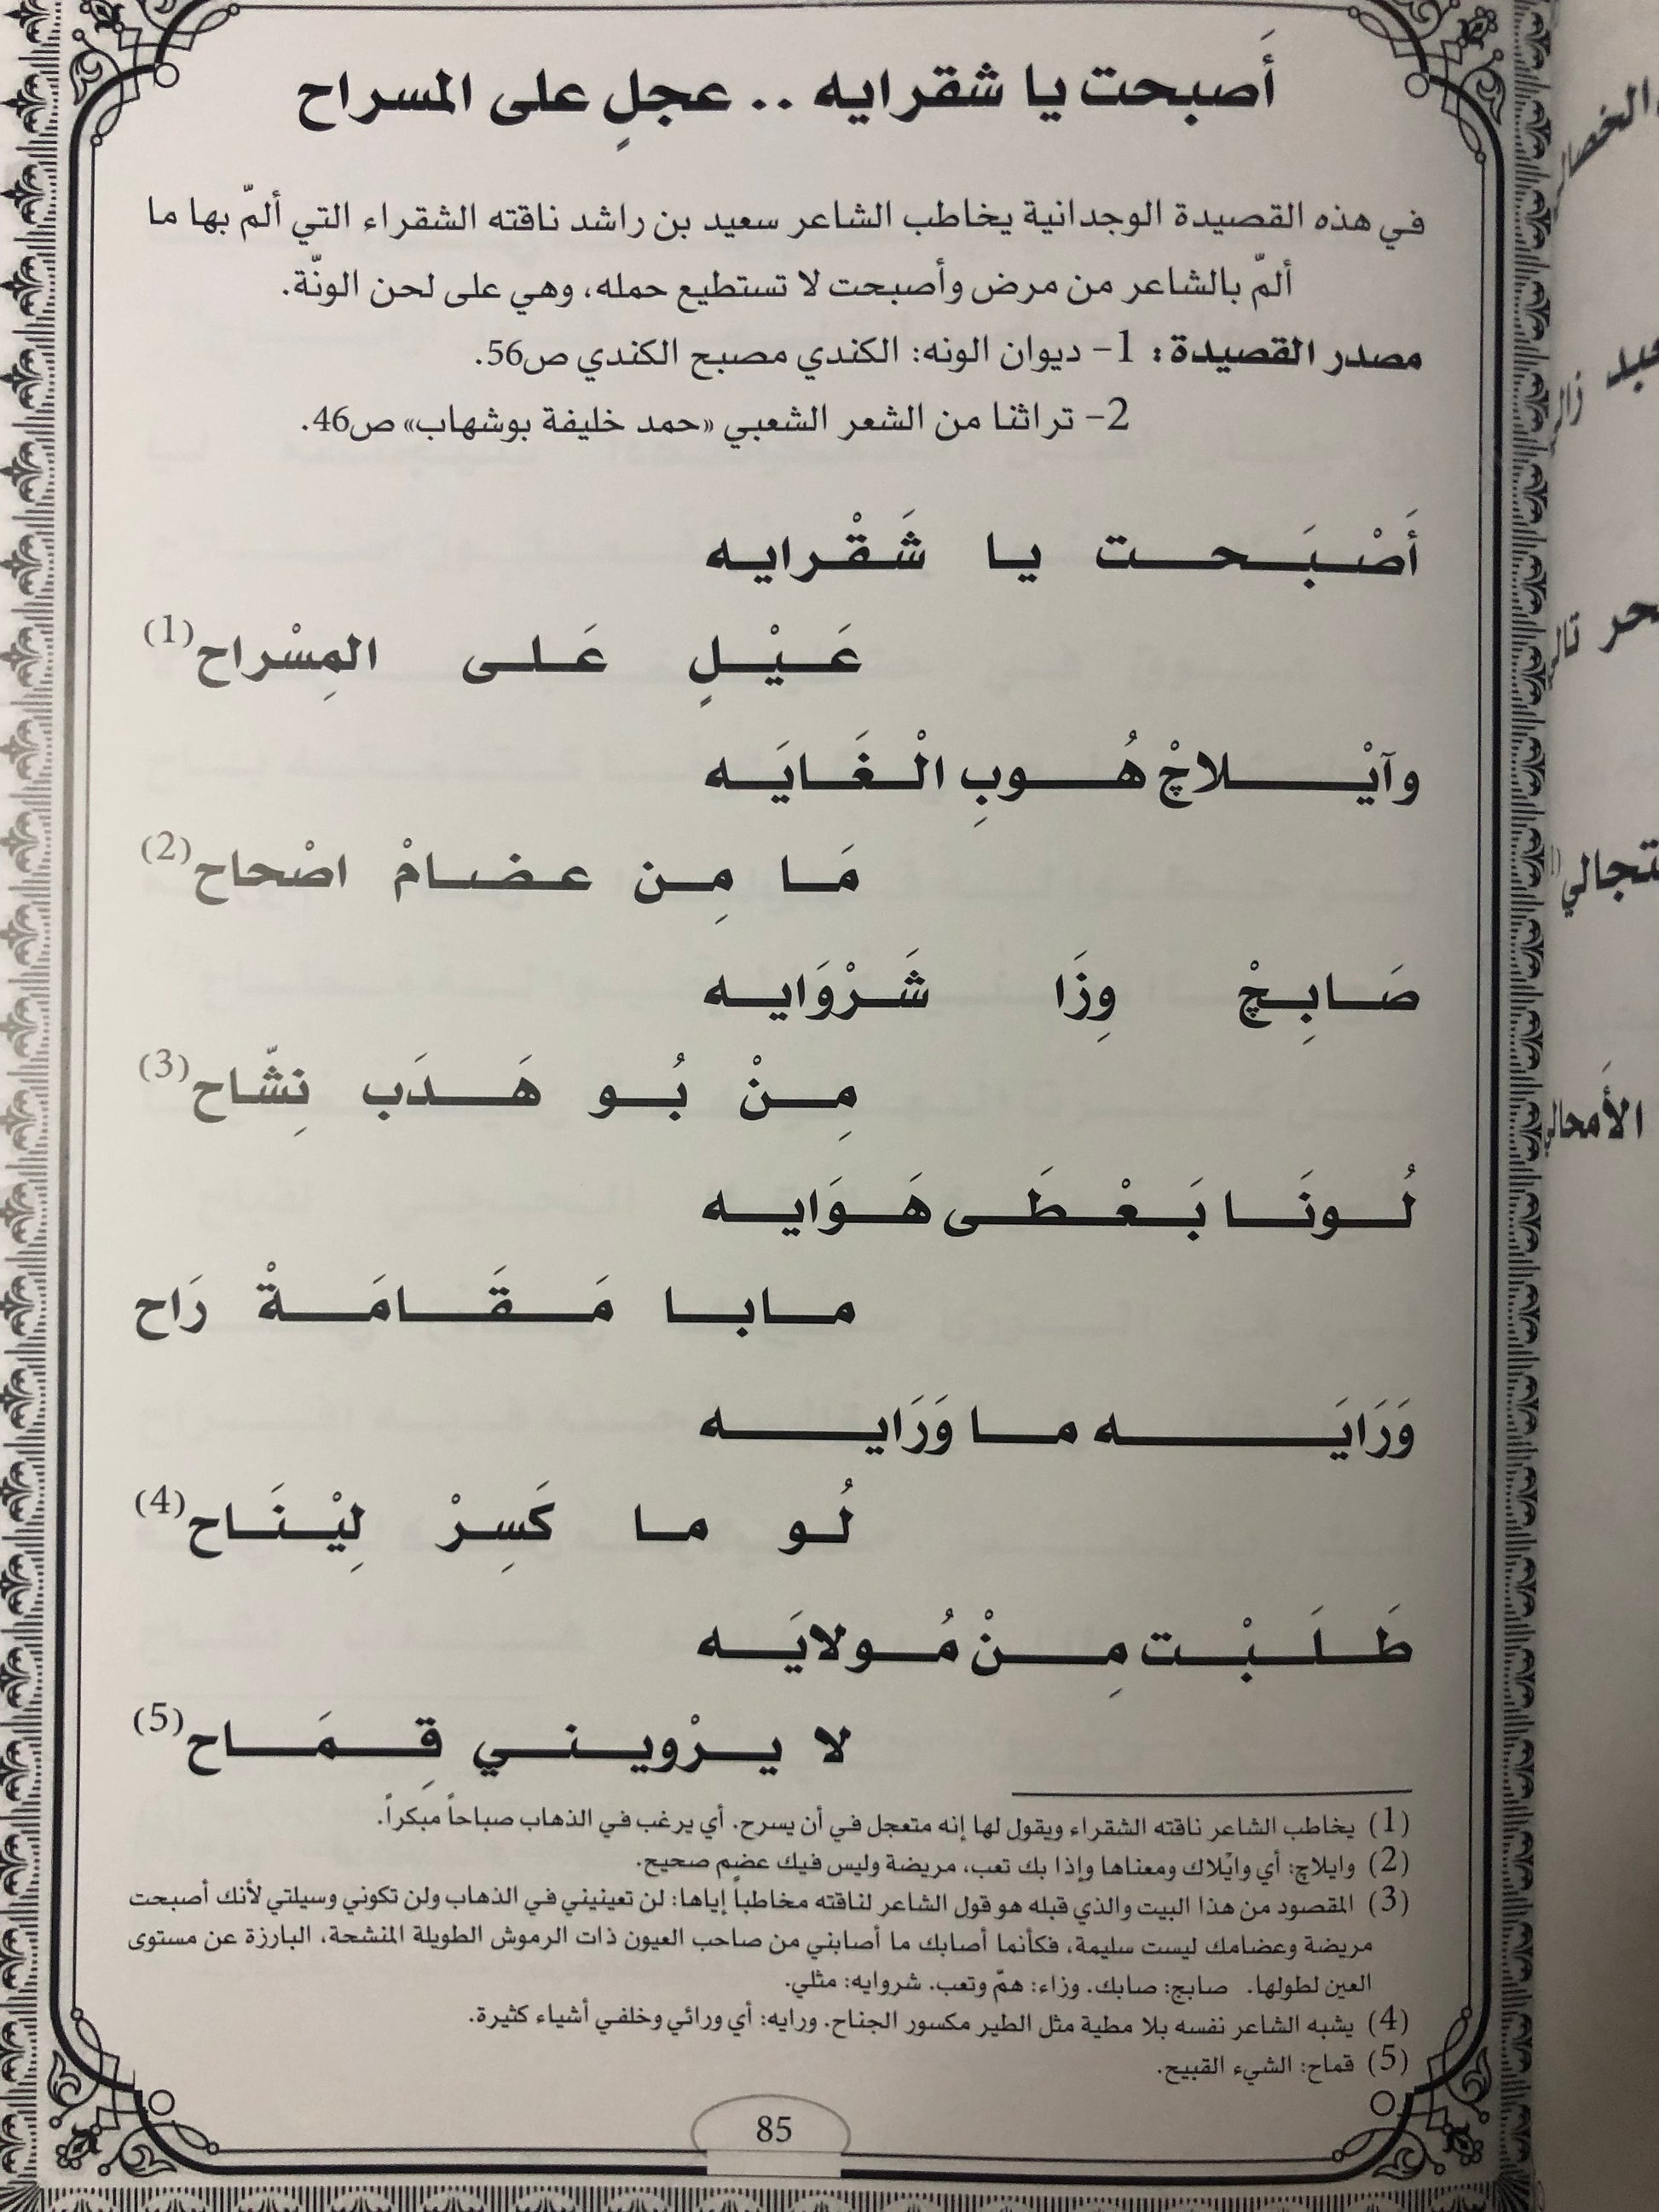 أَصبحت يا شقرايه .. عجلٍ على المسراح
في هذه القصيدة الوجدانية يخاطب الشاعر سعيد بن راشد ناقته الشقراء التي ألمّ بها ما
ألمّ بالشاعر من مرض وأصبحت لا تستطيع حمله، وهي على لحن الونّة.
مصدر القصيدة: 1- ديوان الونه: الكندي مصبح الكندي ص56.
2- تراثنا من الشعر الشعبي «حمد خليفة بوشهاب» ص46.
أَصْبَحت يا شَقْرايه
عَيْلٍ عَلى المِسْراح(1)
وآيْلاجْ هُوبِ الْغَايَه
مَا مِن عضامْ اصْحاح(2)
صَابِجْ وِزَا شَرْوَايه
مِنْ بُو هَدَب نِشّاح(3)
لُونَا بَعْطَى هَوَايه
مابا مَقَامَةْ رَاح
وَرَايَه ما وَرَايه
لُو ما كَسِرْ لِيْنَاح(4)
طَلَبْت مِنْ مُولايَه
لا يرْويني قِمَاح(5)
(1) يخاطب الشاعر ناقته الشقراء ويقول لها إنه متعجل في أن يسرح. أي يرغب في الذهاب صباحاً مبكراً.
(2) وايلاچ: أي وايْلاك ومعناها وإذا بك تعب، مريضة وليس فيك عضم صحيح.
(3) المقصود من هذا البيت والذي قبله هو قول الشاعر لناقته مخاطباً إياها: لن تعينيني في الذهاب ولن تكوني وسيلتي لأنك أصبحت
مريضة وعضامك ليست سليمة، فكأنما أصابك ما أصابني من صاحب العيون ذات الرموش الطويلة المنشحة، البارزة عن مستوى
العين لطولها. صابچ: صابك. وزاء: همّ وتعب. شروايه: مثلي.
(4) يشبه الشاعر نفسه بلا مطية مثل الطير مكسور الجناح. ورايه: أي ورائي وخلفي أشياء كثيرة.
(5) قماح: الشيء القبيح.
85
تالي
الأمحالي